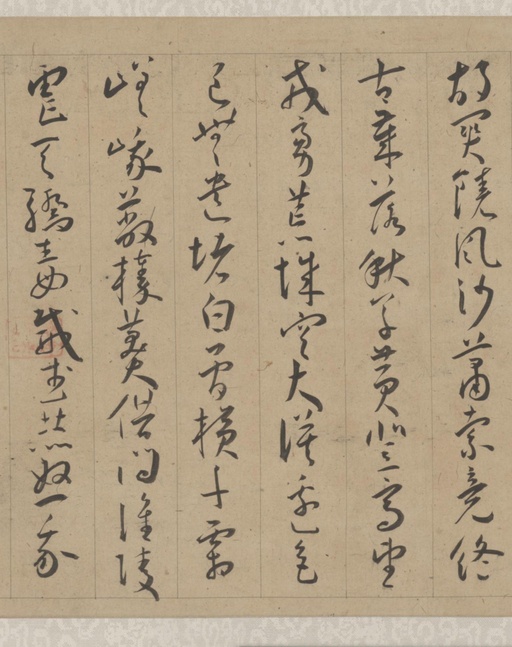 胡關饒風沙蕭索竟終
古葉落秋草黃登高望
戎虜荒城空大漠邊邑
已無遺堵白骨橫千霜
嵯峨蔽榛莽借問誰陵
虐天驕毒威武赫怒我